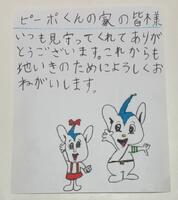 ピーポくんの家の皆様
いつも見守ってくれてありが
とうございます。これからも
地いきのためによろしくお
ねがいします。